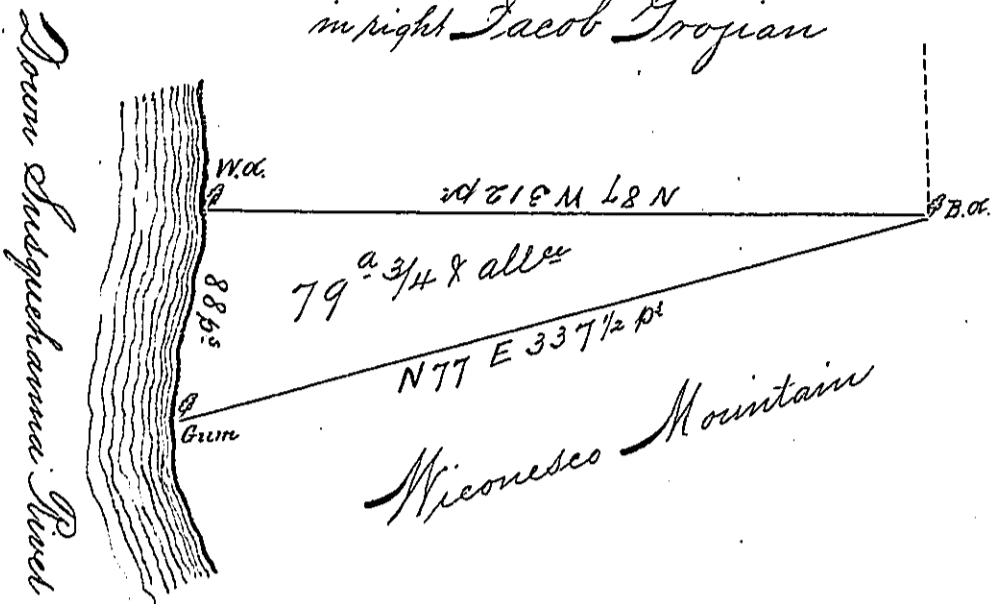 in right Jacob Trojian
Down Susquehanna River
W.O.
N 87 W 312 ps
B.O.
88 ps
79 a 3/4 & allce
N 77 E 337 1/2 ps
Gum
Wiconesco Mountain